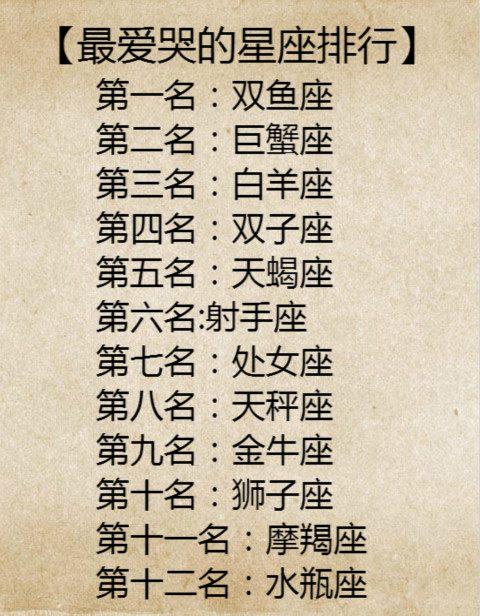 【最爱哭的星座排行】
第一名：双鱼座
第二名：巨蟹座
第三名：白羊座
第四名：双子座
第五名：天蝎座
第六名:射手座
第七名：处女座
第八名：天秤座
第九名：金牛座
第十名：狮子座
第十一名：摩羯座
第十二名：水瓶座